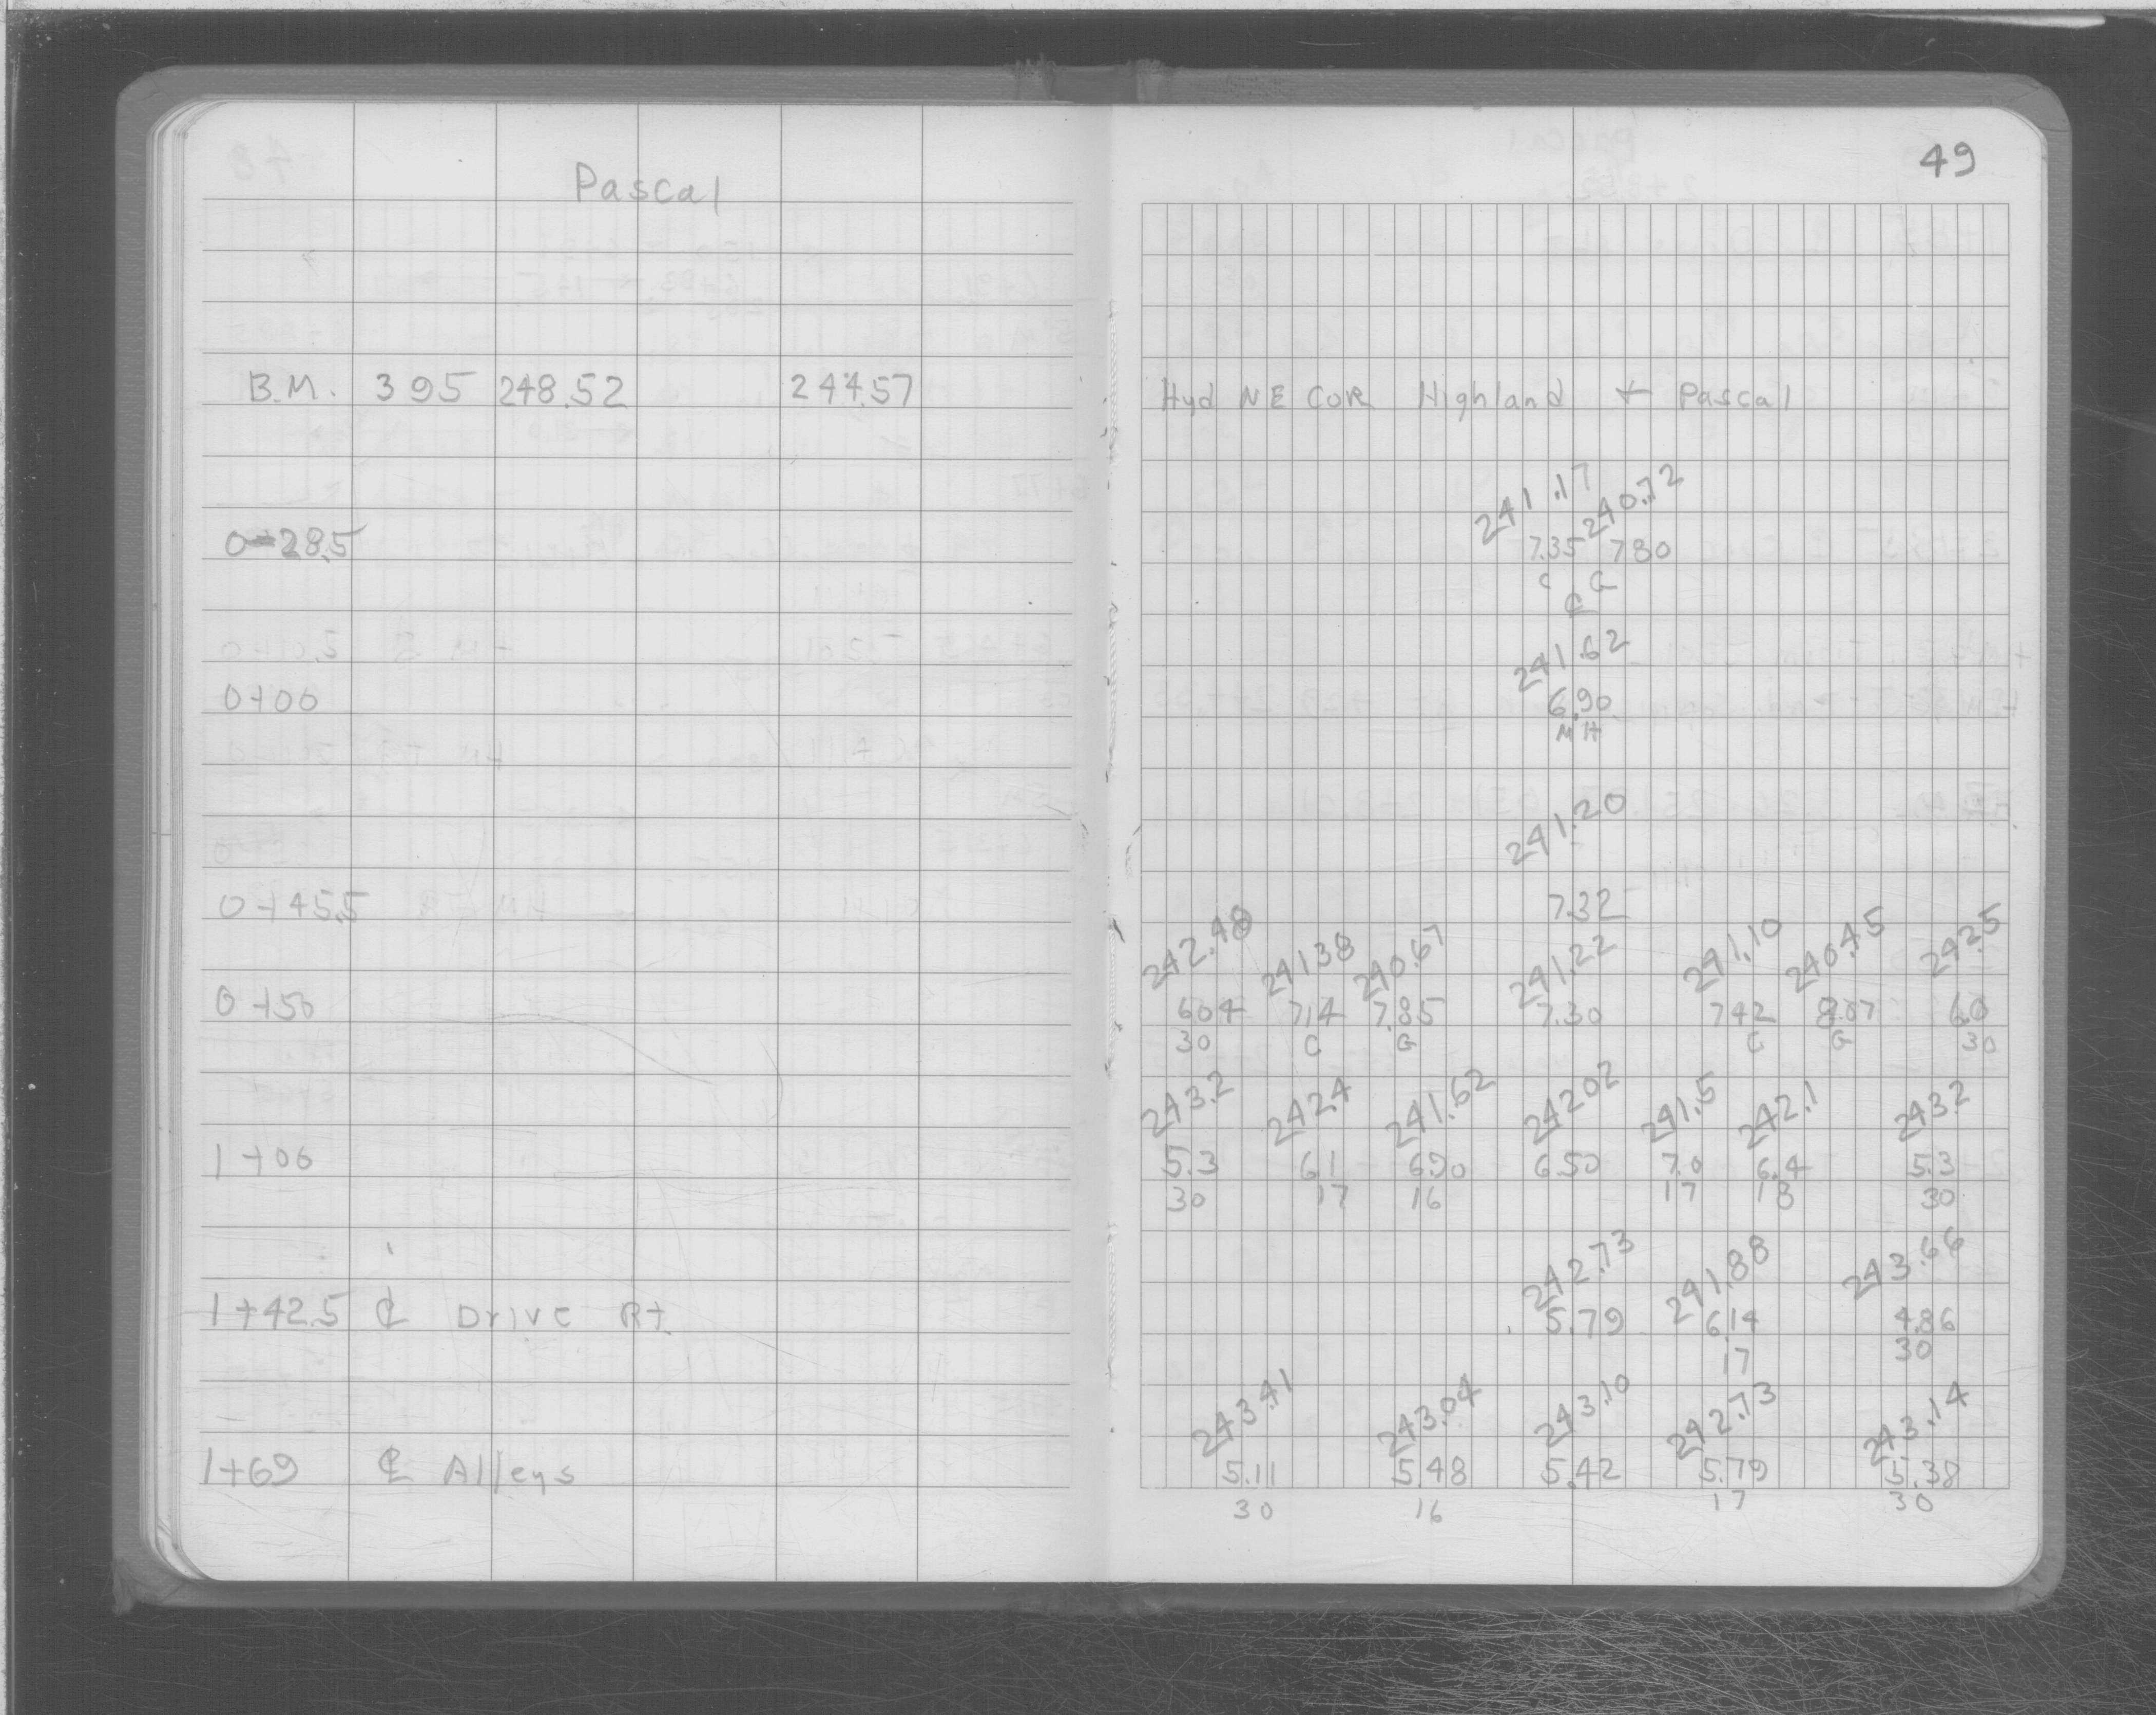 Pascal
49
B.M. 3 95 248.52 244.57 Hyd NE COR Highland + Pascal
241.17 240.72
0-28.5 7.35 7 80
C G
℄
241.62
0+00 6.90
MH
241.20
0+45.5 7.32
242.48 241 38 240.67 241.22 241.10 240.45 242.5
0+50 6 04 7.14 7.85 7.30 7 42 8.07 6.0
30 C G C G 30
243.2 242.4 241.62 242 02 241.5 242.1 243 2
1+00 5.3 6.1 6.90 6.50 7.0 6.4 5.3
30 17 16 17 18 30
242.73 241.88 243.66
1+42.5 ℄ Drive Rt 5.79 6.14 4.86
17 30
243.41 243.04 243.10 242.73 243.14
1+69 ℄ Alleys 5.11 5.48 5.42 5.79 5.38
30 16 17 30